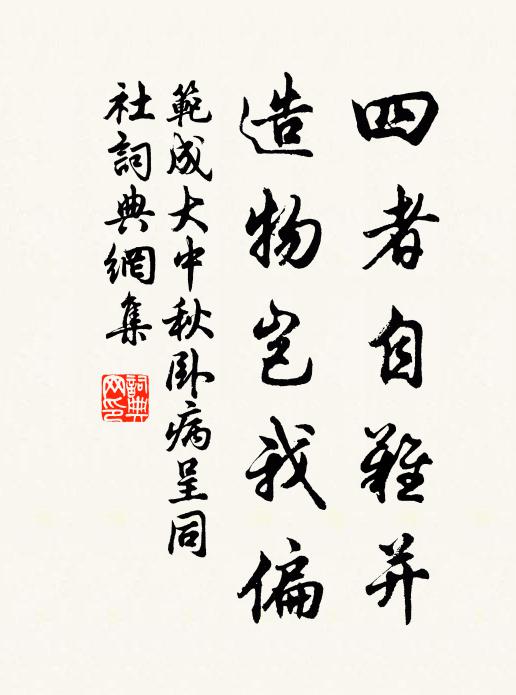 四者自難并
造物豈我偏
範成大中秋卧病呈同
社詞典網集
詞典網印